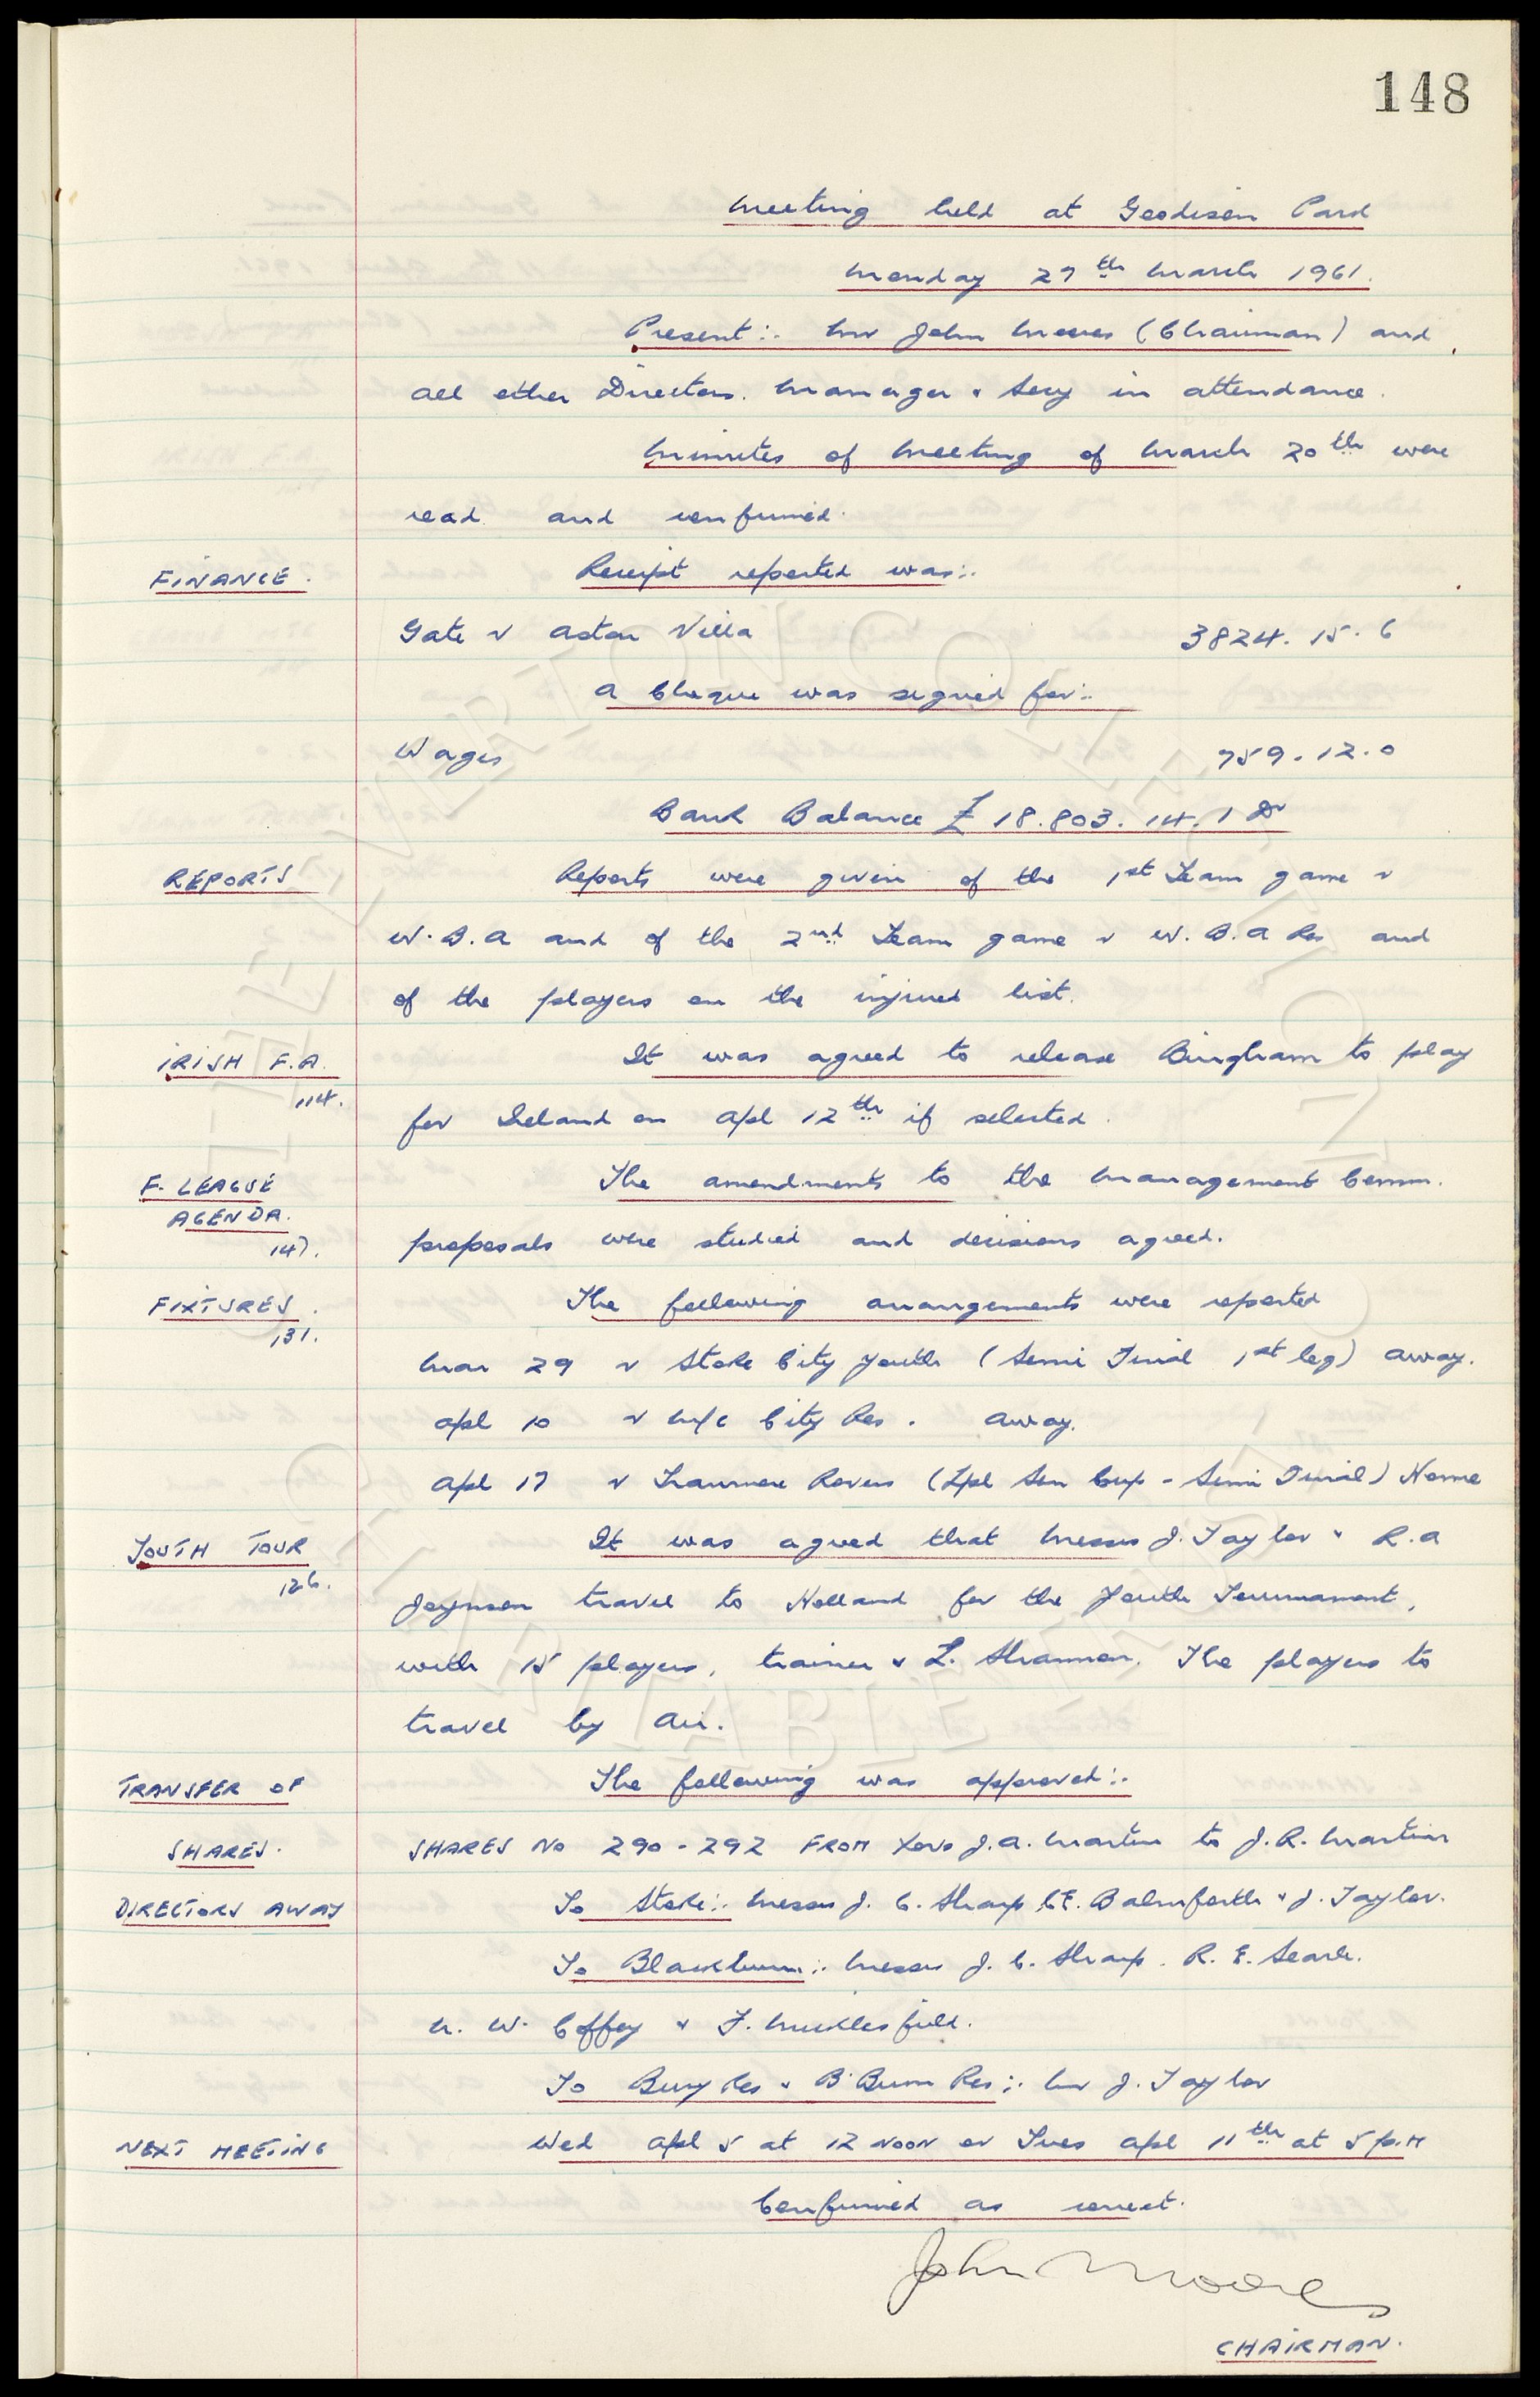 148
Meeting held at Goodison Park
Monday 27th March 1961.
Present:- Mr John Moores (Chairman) and
all other Directors. Manager & Secy in attendance.
Minutes of Meeting of March 20th were
read and confirmed.
FINANCE. Receipt reported was:-
Gate v Aston Villa 3824. 15. 6
A Cheque was signed for:-
Wages 759. 12. 0
Bank Balance £ 18.803. 14. 1 Dr
REPORTS Reports were given of the 1st Team game v
W.B.A and of the 2nd Team game v W.B.A Res and
of the players on the injured list.
IRISH F.A. It was agreed to release Bingham to play
114.
for Ireland on Apl 12th if selected.
F. LEAGUE The amendments to the Management Comm.
AGENDA.
147. proposals were studied and decisions agreed.
FIXTURES. The following arrangements were reported
131.
Mar 29 v Stoke City Youth (Semi Final 1st leg) Away.
Apl 10 v M/c City Res. Away.
Apl 17 v Tranmere Rovers (Lpl Sen Cup - Semi Final) Home
YOUTH TOUR It was agreed that Messrs J. Taylor & R.A
126.
Joynson travel to Holland for the Youth Tournament,
with 15 players, trainer & L. Shannon. The players to
travel by Air.
TRANSFER OF The following was approved:-
SHARES. SHARES NO 290 - 292 FROM Xors J.A. Martin to J.R. Martin
DIRECTORS AWAY To Stoke:- Messrs J. C. Sharp C.E. Balmforth & J. Taylor.
To Blackburn:- Messrs J. C. Sharp. R. E. Searle.
N. W. Coffey & F. Micklesfield.
To Bury Res & B'Burn Res:- Mr J. Taylor
NEXT MEETING Wed Apl 5 at 12 NOON or Tues Apl 11th at 5 p.m
Confirmed as correct.
John Moores
CHAIRMAN.